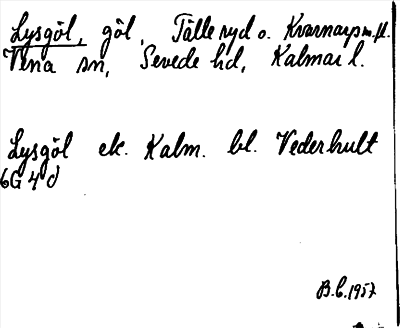 Lysgöl, göl, Tälleryd o. Kvarnarp m.fl.
Vena sn, Sevede hd, Kalmar l.
Lysgöl ek. Kalm. bl. Vederhult
6G 4d
B.C. 1957